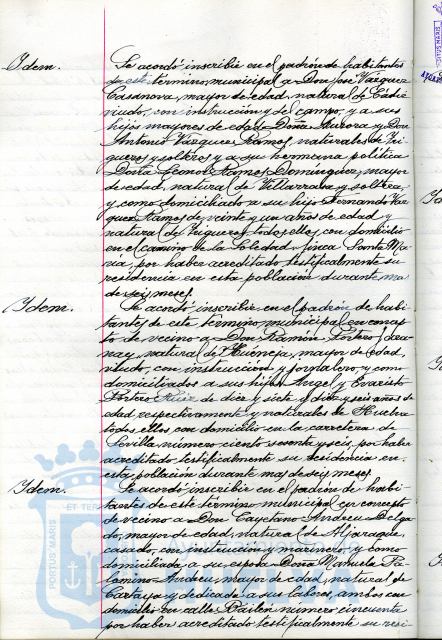 Idem. Se acordó inscribir en el padrón de habitantes
de este término municipal a Don José Vázquez
Casanova, mayor de edad, natural de Cádiz
viudo, con instrucción y del campo, y a sus
hijos mayores de edad Doña Aurora y Don
Antonio Vázquez Ramos, naturales de Tri-
gueros y solteros y a su hermana política
Doña Leonor Ramos Domínguez, mayor
de edad, natural de Villarrasa y soltera,
y como domiciliado a su hijo Fernando Váz-
quez Ramos de veinte y un años de edad y
natural de Trigueros, todos ellos con domicilio
en el camino de la Soledad, finca Santa Ma-
ría, por haber acreditado testificalmente su
residencia en esta población durante mas
de seis meses.
Idem. Se acordó inscribir en el padrón de habi-
tantes de este término municipal en concep-
to de vecino a Don Ramón Portero
natural de mayor de edad,
viudo, con instrucción y jornalero, y como
domiciliados a sus hijos Angel y Evaristo
Portero Ruiz de diez y siete y diez y seis años de
edad respectivamente y naturales de Huelva
todos ellos con domicilio en la carretera de
Sevilla número ciento y seis, por haber
acreditado testificalmente su residencia en
esta población durante mas de seis meses.
Idem. Se acordó inscribir en el padrón de habi-
tantes de este término municipal en concepto
de vecino a Don Cayetano Andreu Delga-
do, mayor de edad, natural de Aljaraque,
casado, con instrucción y marinero, y como
domiciliada a su esposa Doña Manuela Pa-
lomino Andreu, mayor de edad, natural de
Cartaya y dedicada a sus labores, ambos con
domicilio en calle Bailén número cincuenta
por haber acreditado testificalmente su resi-
PORTUS MARIS
ET TER